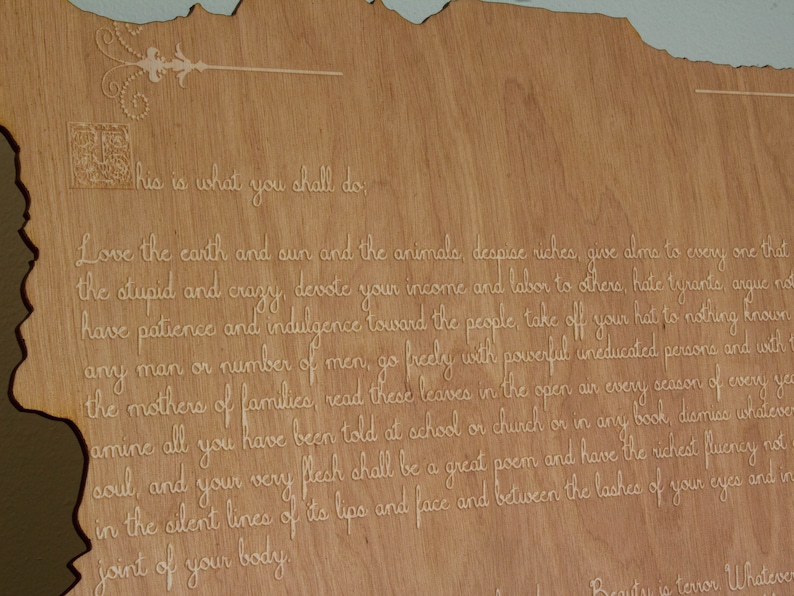 This is what you shall do;
Love the earth and sun and the animals, despise riches, give alms to every one that
the stupid and crazy, devote your income and labor to others, hate tyrants, argue not
have patience and indulgence toward the people, take off your hat to nothing known
any man or number of men, go freely with powerful uneducated persons and with
the mothers of families, read these leaves in the open air every season of every
amine all you have been told at school or church or in any book, dismiss whatever
soul, and your very flesh shall be a great poem and have the richest fluency not
in the silent lines of its lips and face and between the lashes of your eyes and in
joint of your body.
Beauty is terror. Whatever